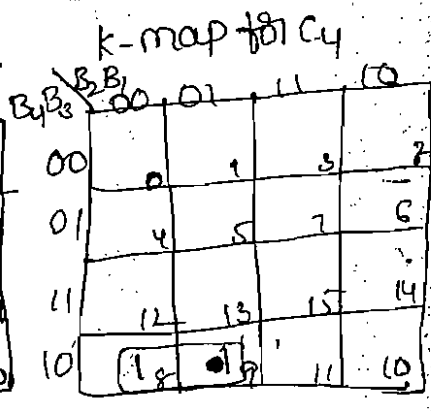 K-map for C4
B2B1
B4B3 00 01 11 10
00 0 1 3 2
01 4 5 7 6
11 12 13 15 14
10 1 8 1 9 11 10